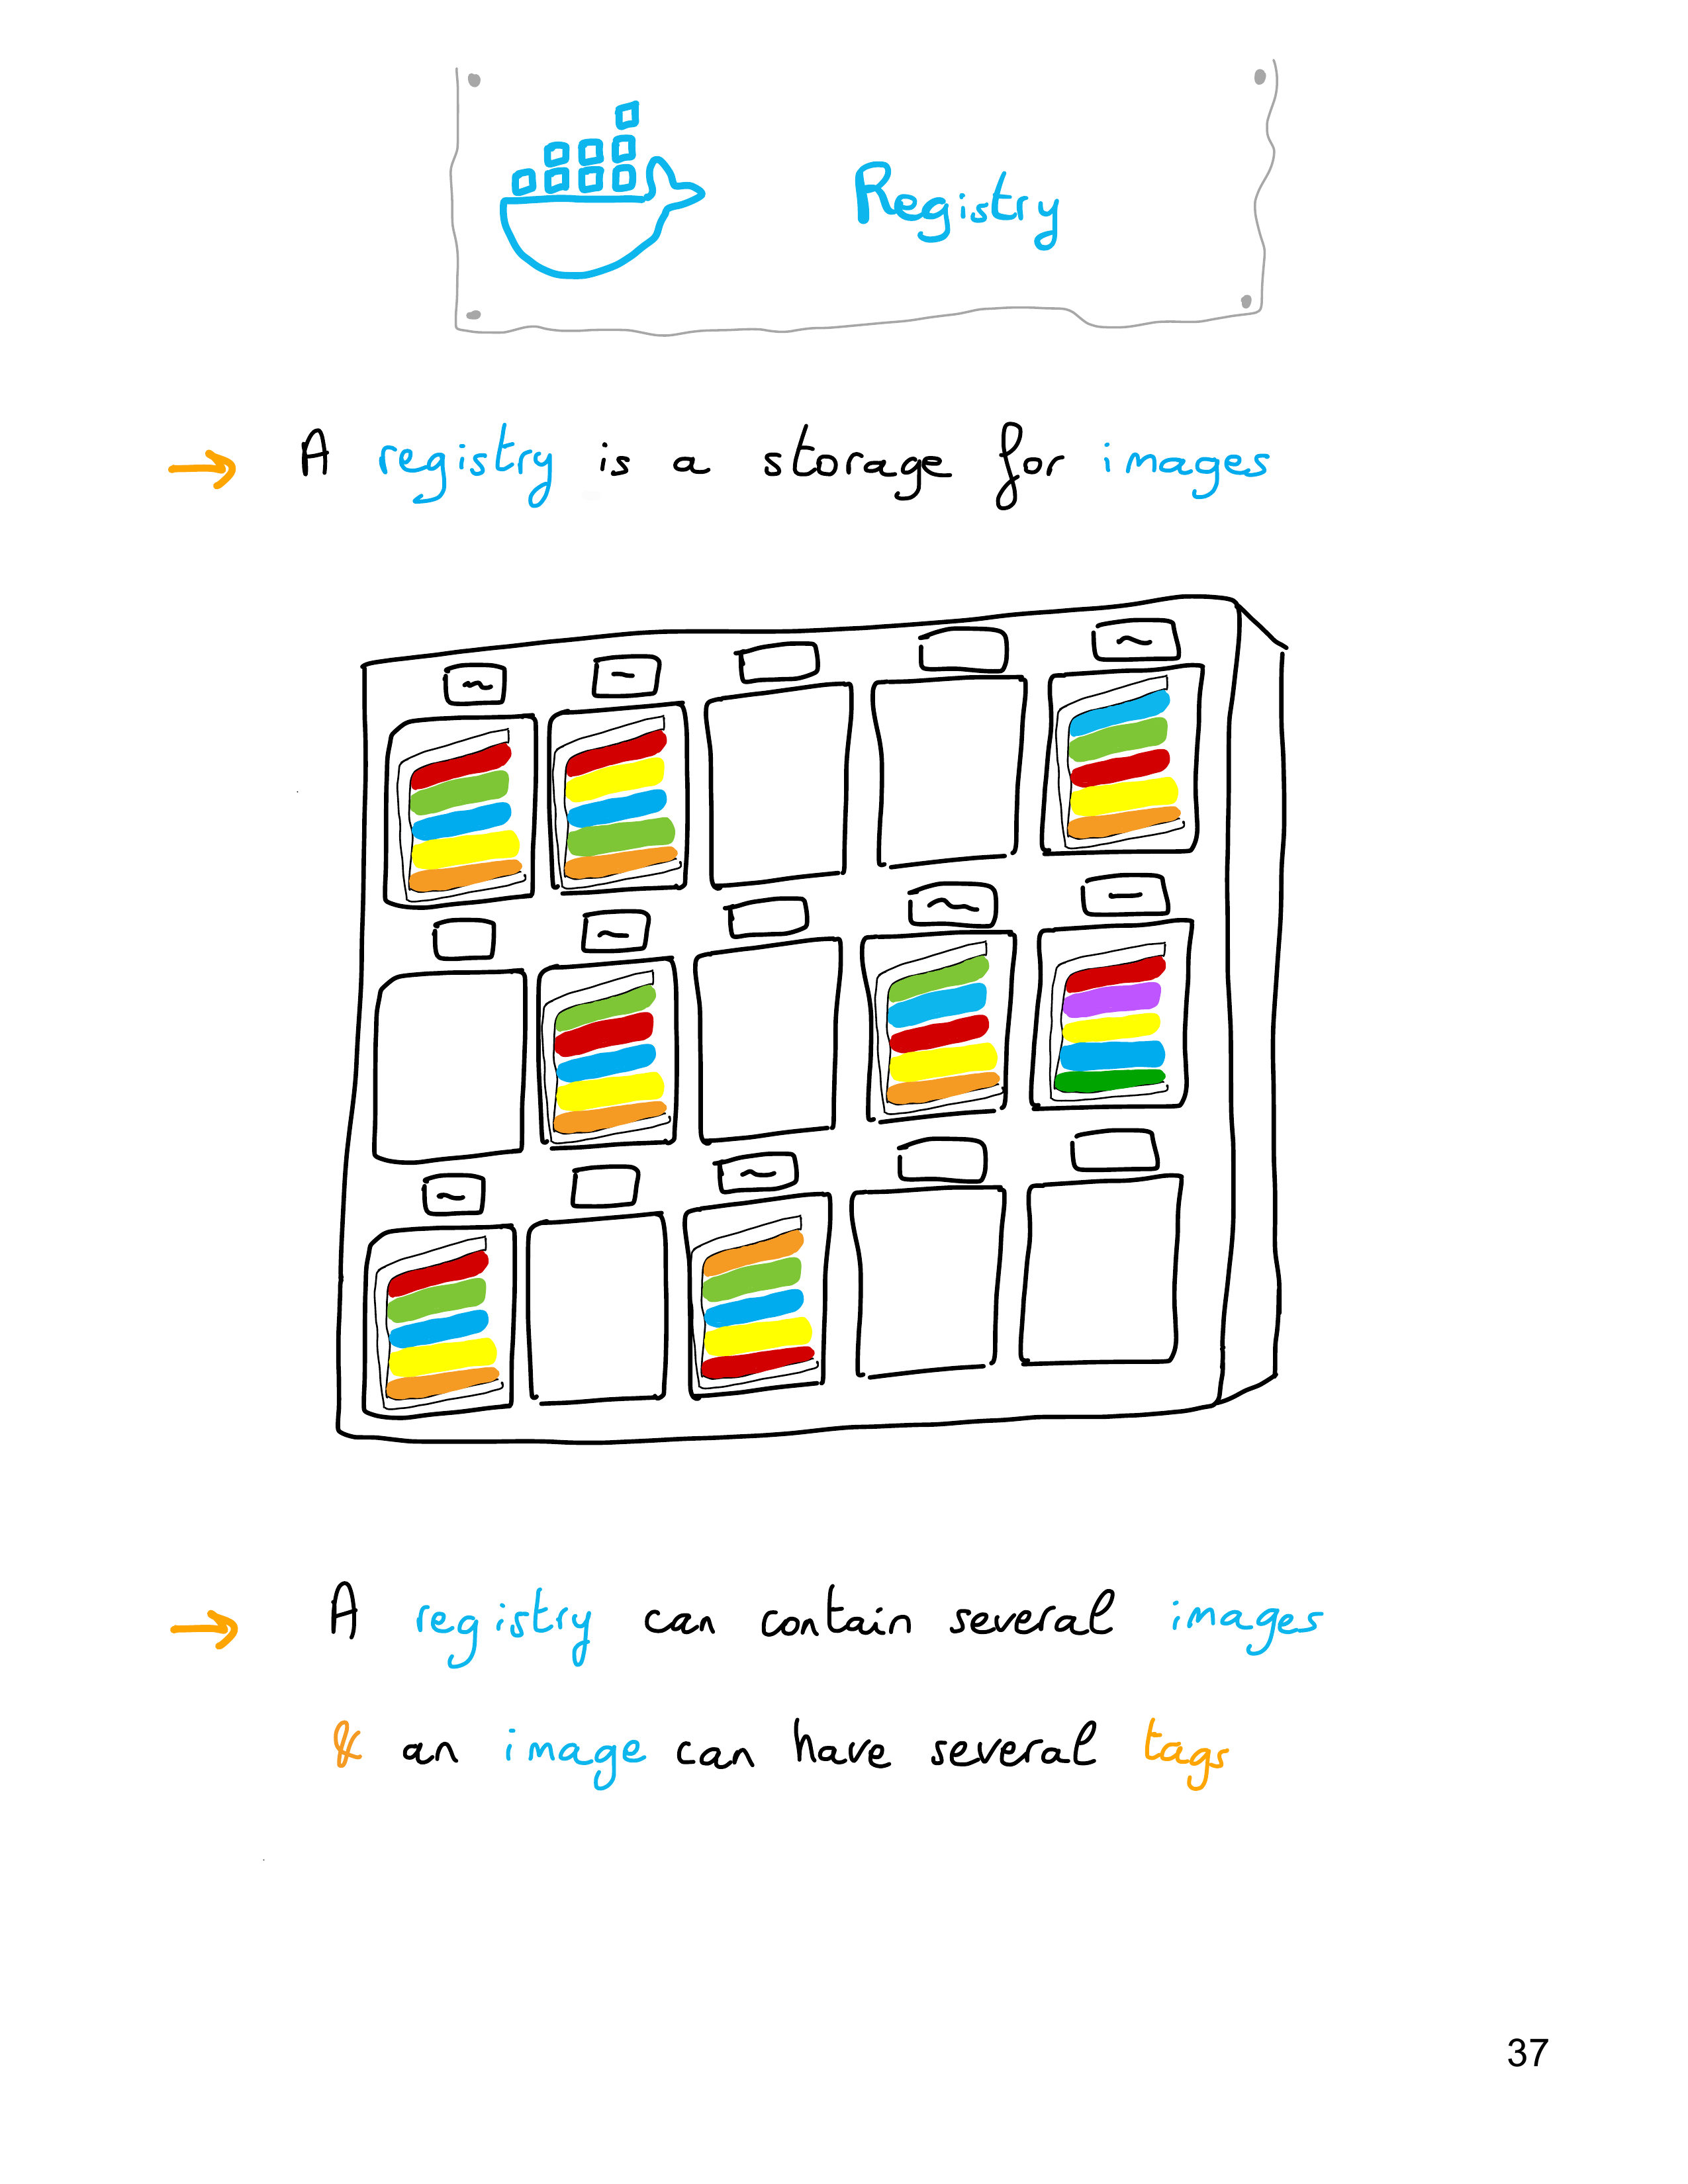 Registry
→ A registry is a storage for images
→ A registry can contain several images
& an image can have several tags
37